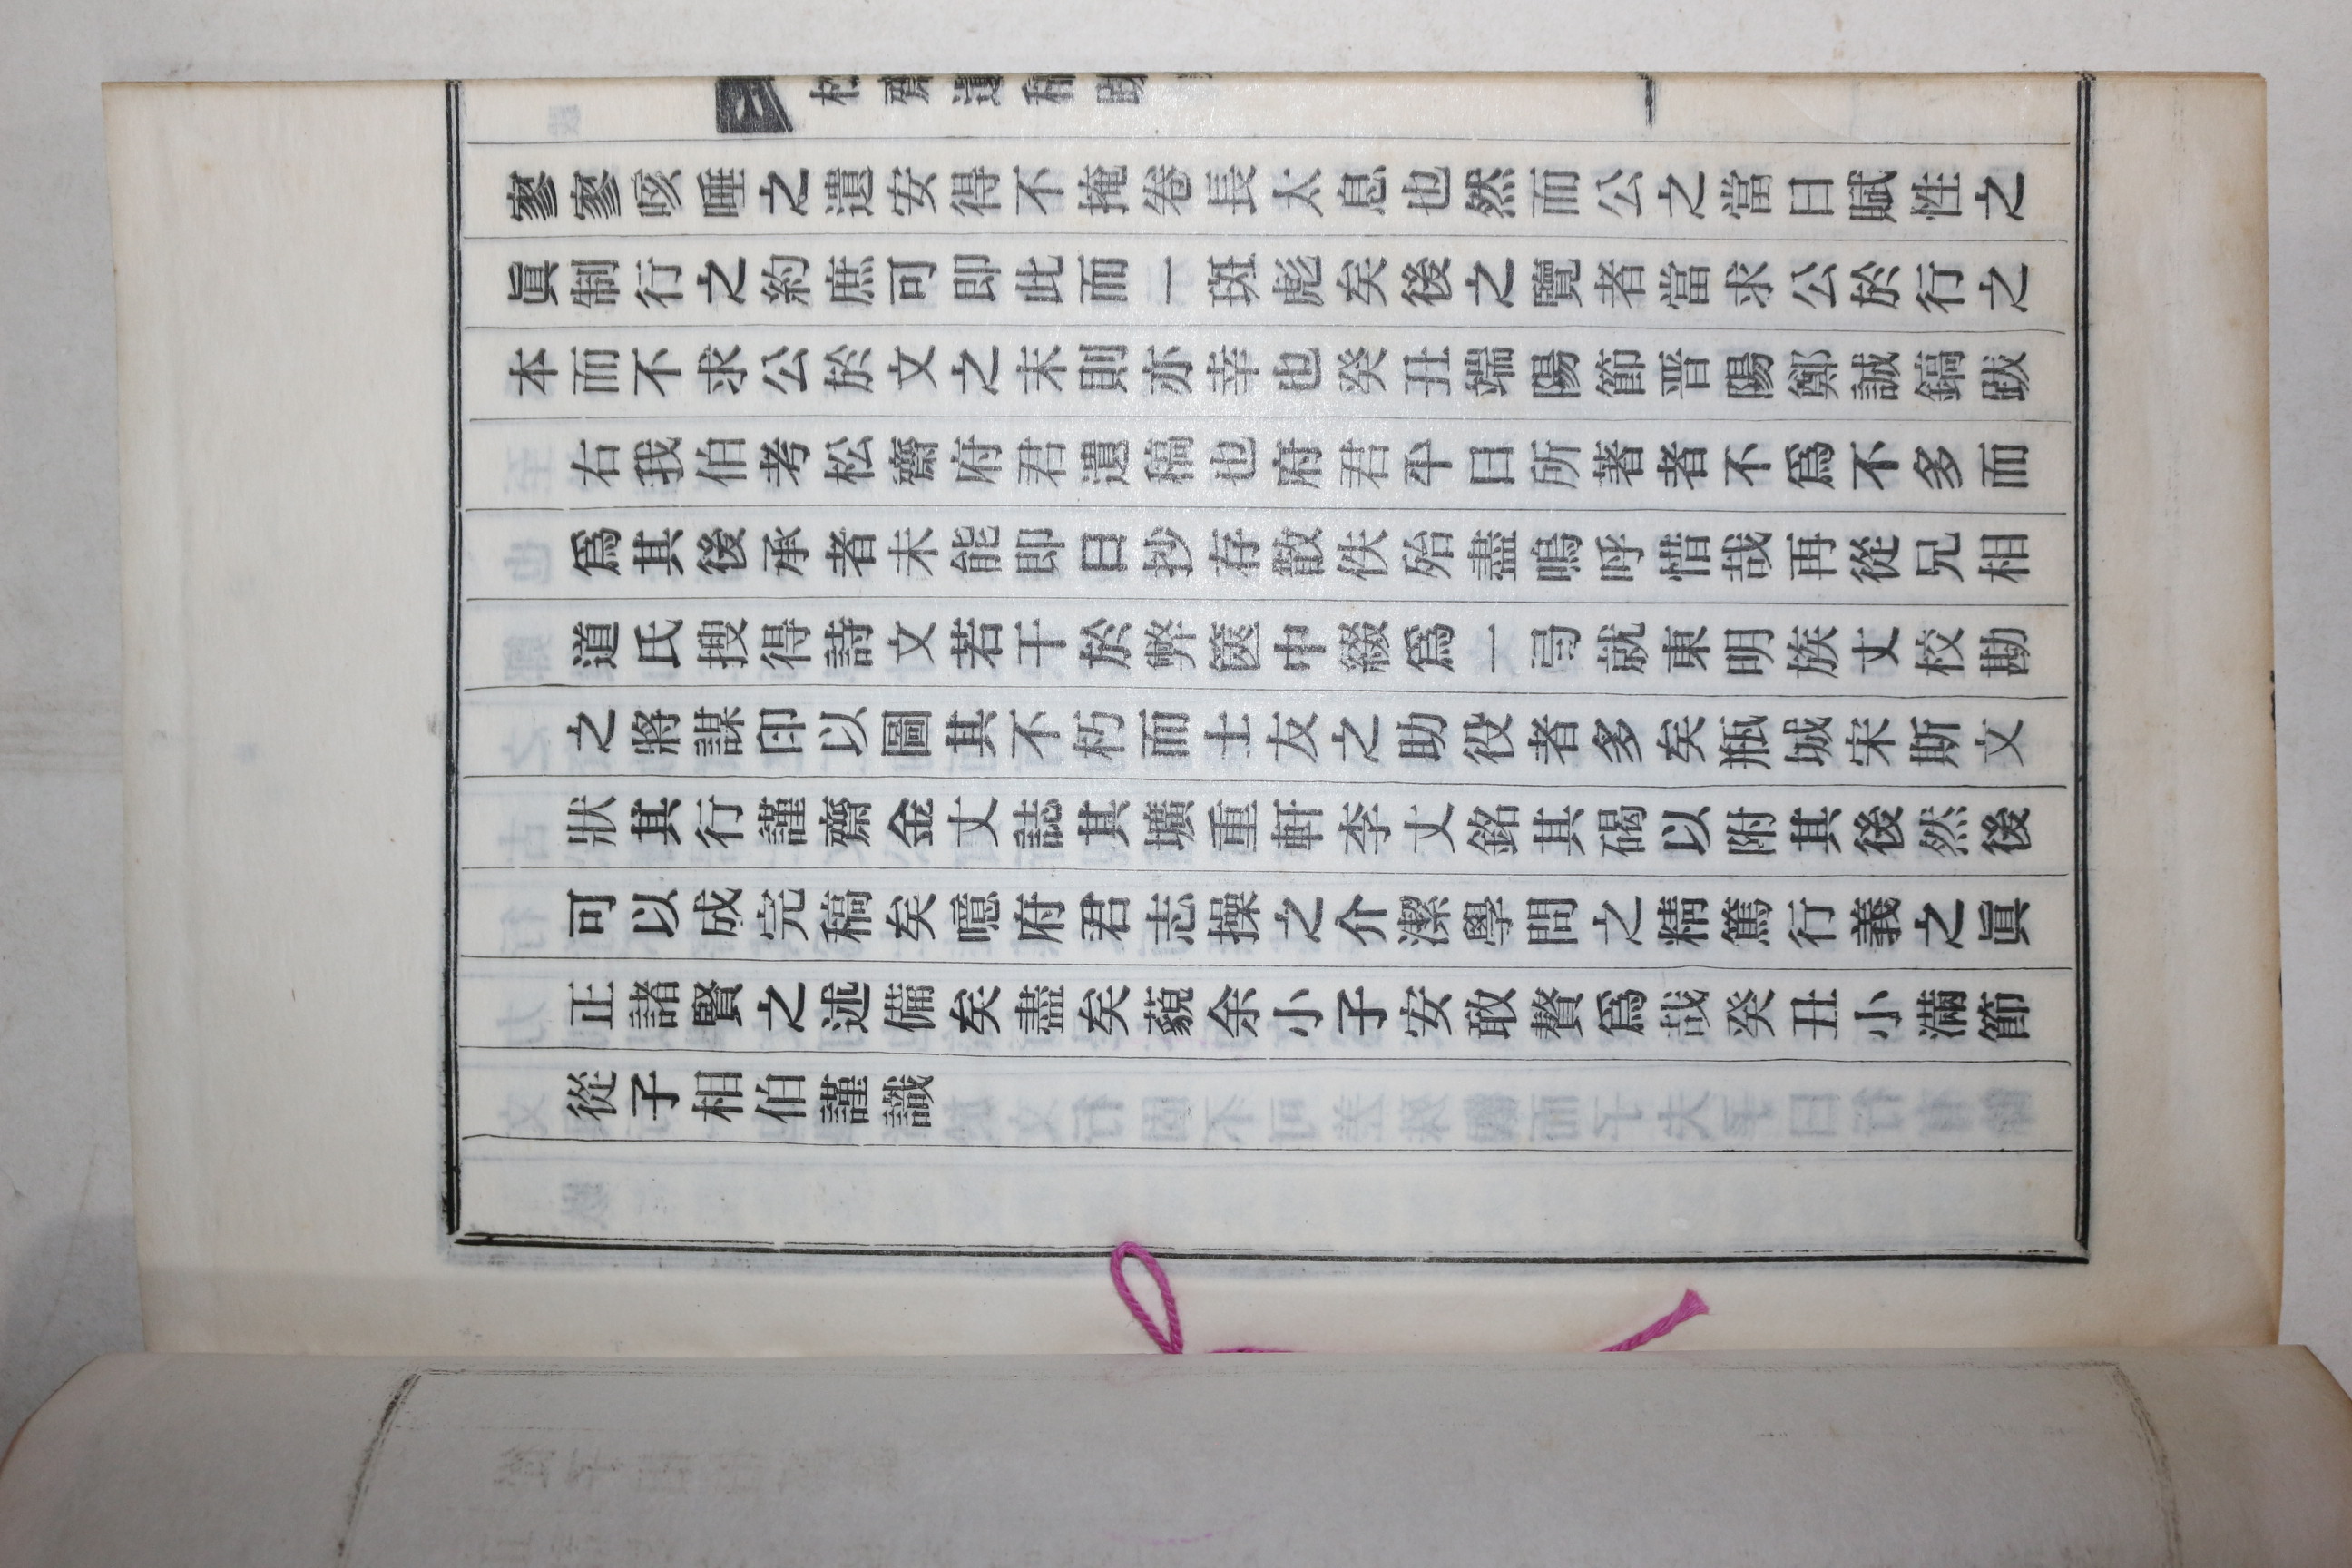 松齋遺稿跋
寥寥咳唾之遺安得不掩卷長太息也然而公之當日賦性之
眞制行之約庶可卽此而一斑彪矣後之覽者當求公於行之
本而不求公於文之末則亦幸也癸丑端陽節晋陽鄭誠鎬跋
右我伯考松齋府君遺稿也府君平日所著者不爲不多而
爲其後承者未能卽日抄存散佚殆盡嗚呼惜哉再從兄相
道氏搜得詩文若干於弊篋中綴爲一㢧就東明族丈校勘
之將謀印以圖其不朽而士友之助役者多矣瓶城宋斯文
狀其行謹齋金丈誌其壙重軒李丈銘其碣以附其後然後
可以成完稿矣噫府君志操之介潔學問之精篤行義之眞
正諸賢之述備矣盡矣藐余小子安敢贅爲哉癸丑小滿節
從子相伯謹識